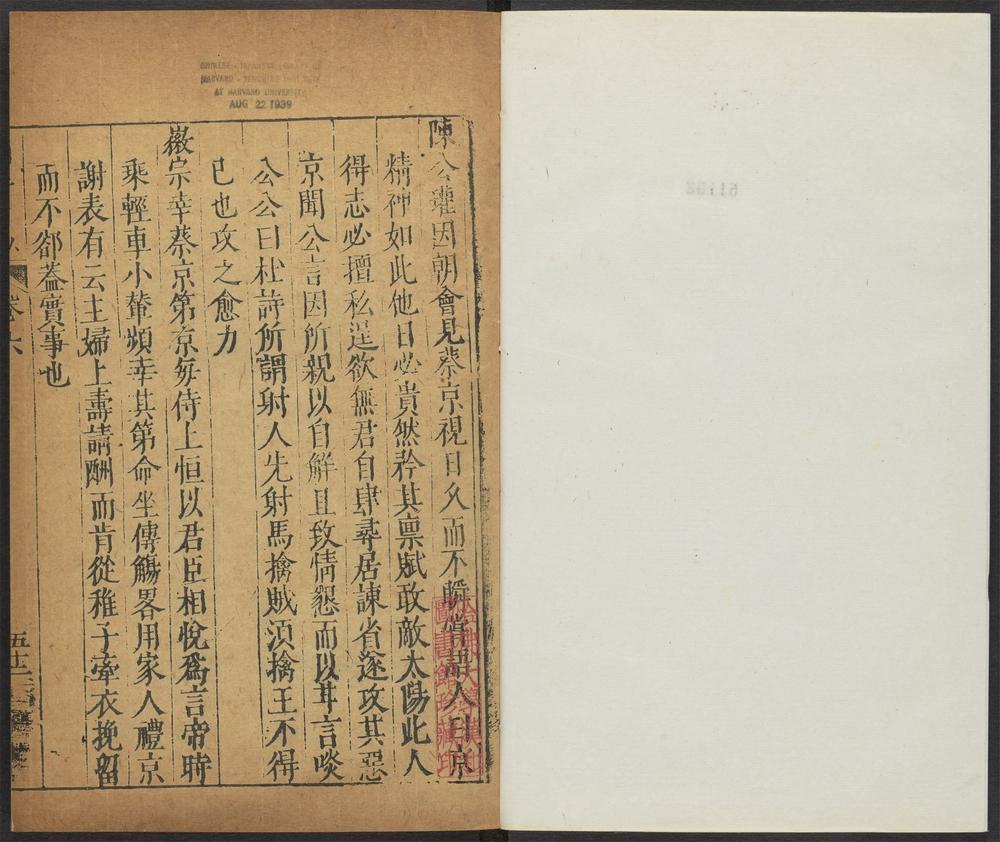 陳公瓘因朝會見蔡京視日久而不瞬嘗語人曰京
精神如此他日必貴然矜其禀賦敢敵太陽此人
得志必擅私逞欲無君自肆尋居諫省遂攻其惡
京聞公言因所親以自解且致情懇而以甘言啖
公公曰杜詩所謂射人先射馬擒賊須擒王不得
已也攻之愈力
徽宗幸蔡京第京每侍上恒以君臣相悅爲言帝時
乘輕車小輦頻幸其第命坐傳觴畧用家人禮京
謝表有云主婦上壽請酬而肯從稚子牽衣挽留
而不郤蓋實事也
卷六
五十二
CHINESE-JAPANESE LIBRARY OF
HARVARD-YENCHING INSTITUTE
AT HARVARD UNIVERSITY
AUG 22 1939
哈佛大學漢和
圖書館珍藏印